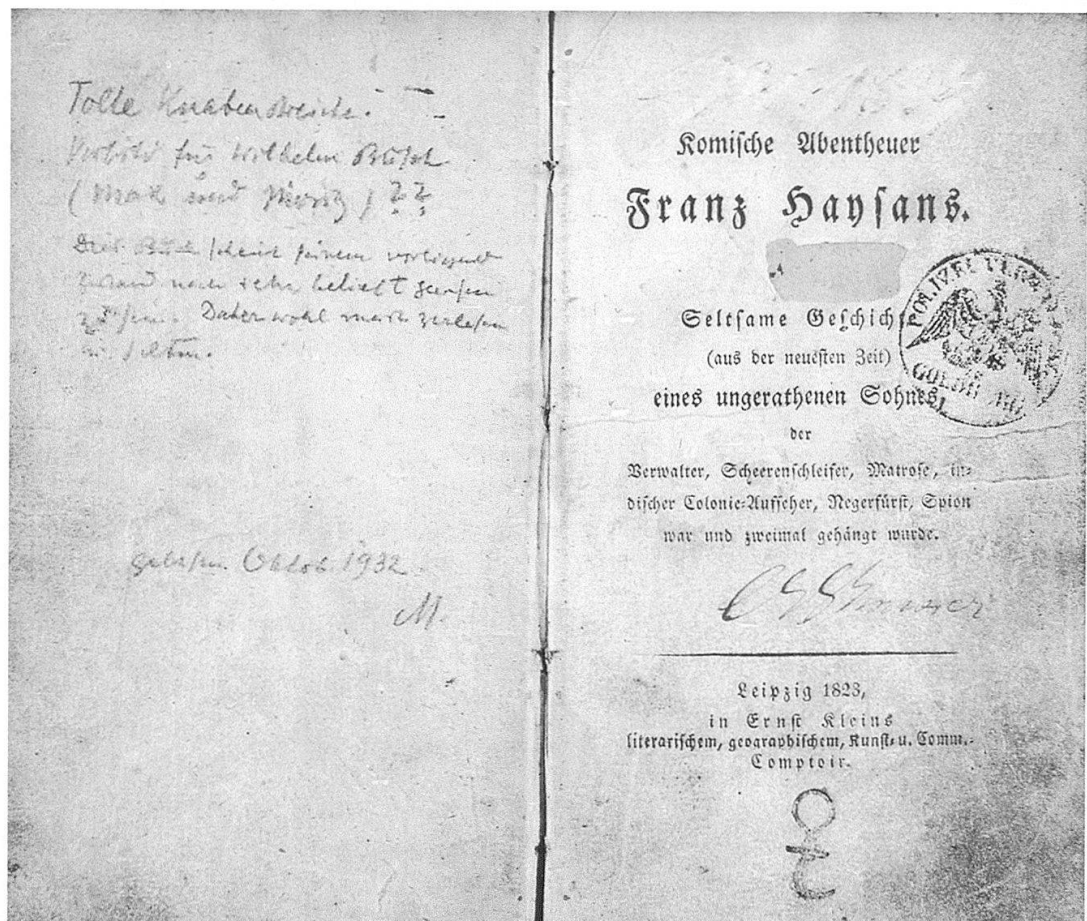 Tolle Knabenstreiche.
Vorbild für Wilhelm Busch
(Max und Moritz) ??
Dies Buch scheint seinem vorliegend
Zustand nach sehr beliebt gewesen
zu sein. Daher wohl meist zerlesen
u. selten.
gelesen Oktob 1932
M.
Komische Abentheuer
Franz Haysans.
Seltsame Geschich
(aus der neuesten Zeit)
eines ungerathenen Sohnes,
der
Verwalter, Scheerenschleifer, Matrose, in-
discher Colonie-Aufseher, Negerfürst, Spion
war und zweimal gehängt wurde.
Leipzig 1823,
in Ernst Kleins
literarischem, geographischem, Kunst- u. Comm.-
Comptoir.